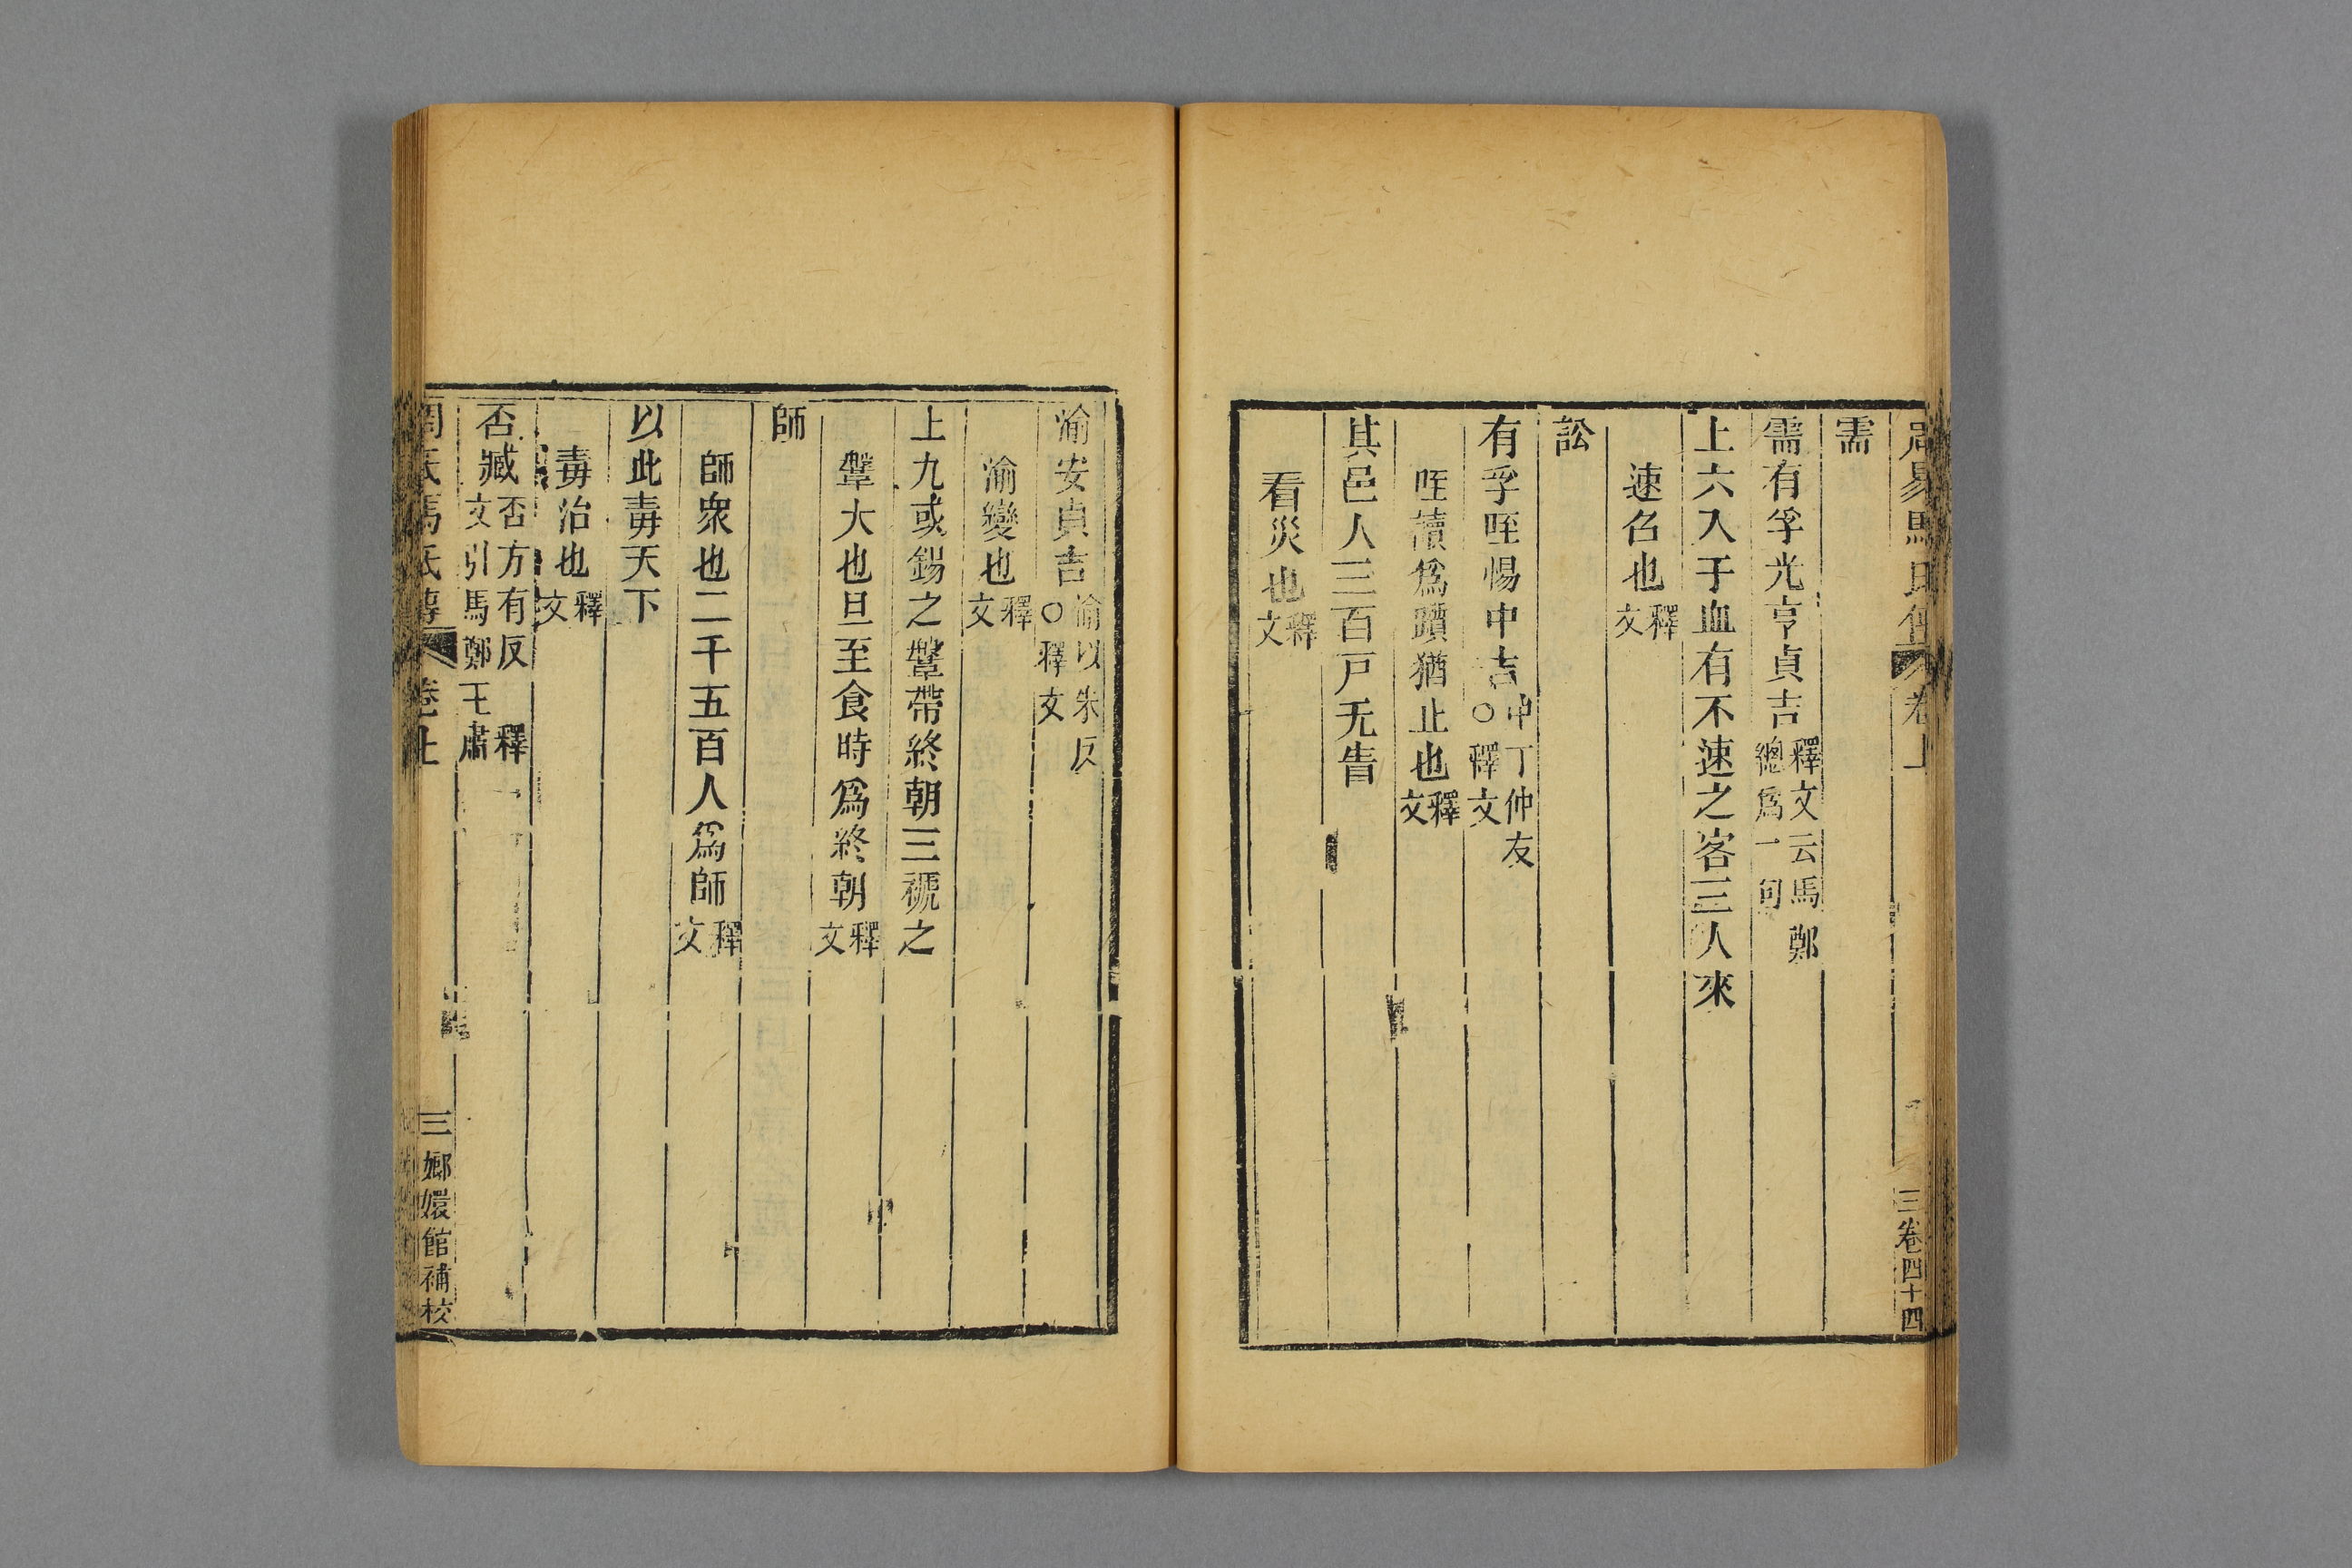 周易馬氏傳 卷上 三 卷四十四
需
需有孚光亨貞吉釋文云馬鄭總爲一句
上六入于血有不速之客三人來
速召也釋文
訟
有孚咥惕中吉中丁仲友○釋文
咥讀爲躓猶止也釋文
其邑人三百戸无眚
眚災也釋文
渝安貞吉渝以朱反○釋文
渝變也釋文
上九或錫之鞶帶終朝三褫之
鞶大也旦至食時爲終朝釋文
師
師衆也二千五百人爲師釋文
以此毒天下
毒治也釋文
否臧否方有反 釋文引馬鄭王肅
周易馬氏傳 卷上 三 嫏嬛館補校